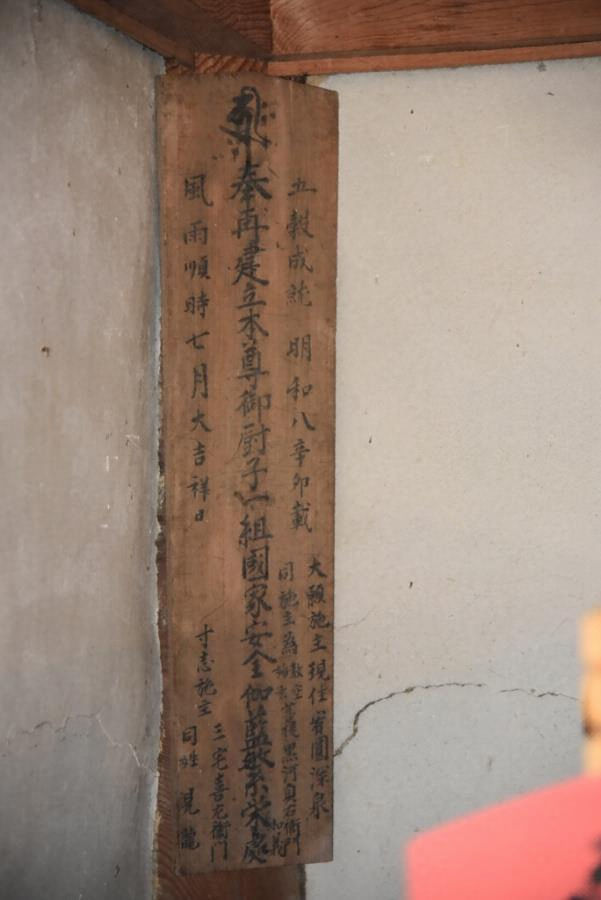 五穀成就 明和八辛卯載
大願施主現住宥圓深泉
同施主為
菩提黒河貞右衛門
奉再建立本尊御厨子一組國家安全伽藍繁栄處
風雨順時七月大吉祥日
寸志施主
三宅喜左衛門
同姓